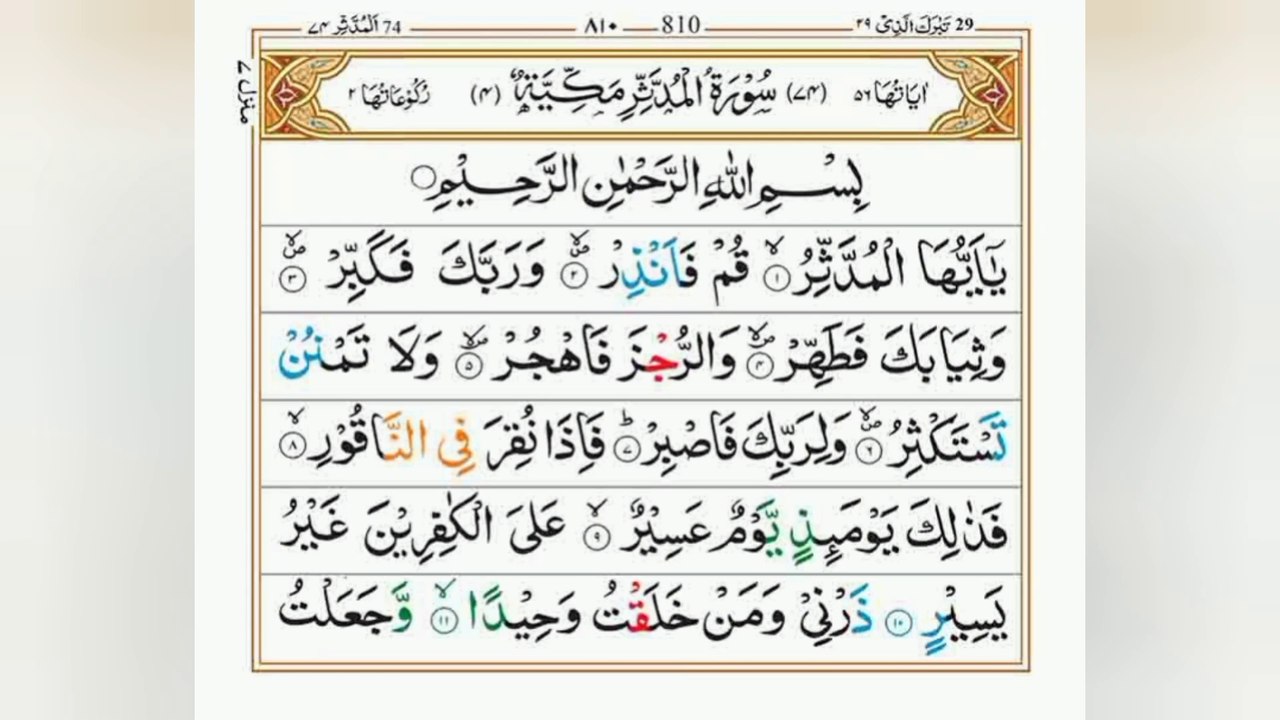 29 تَبٰرَكَ الَّذِیْ ۲۹ 810 ۸۱۰ 74 اَلْمُدَّثِّر ۷۴
منزل ۷
اٰیَاتُهَا ۵۶ (۷۴) سُوْرَةُ الْمُدَّثِّرِ مَكِّیَّةٌ (۴) رُكُوْعَاتُهَا ۲
بِسْمِ اللّٰهِ الرَّحْمٰنِ الرَّحِیْمِ ○
یٰۤاَیُّهَا الْمُدَّثِّرُ ۙ﴿۱﴾ قُمْ فَاَنْذِرْ ۪ۙ﴿۲﴾ وَرَبَّكَ فَكَبِّرْ ۪ۙ﴿۳﴾
وَثِیَابَكَ فَطَهِّرْ ۪ۙ﴿۴﴾ وَالرُّجْزَ فَاهْجُرْ ۪ۙ﴿۵﴾ وَلَا تَمْنُنْ
تَسْتَكْثِرُ ۪ۙ﴿۶﴾ وَلِرَبِّكَ فَاصْبِرْ ؕ﴿۷﴾ فَاِذَا نُقِرَ فِی النَّاقُوْرِ ۙ﴿۸﴾
فَذٰلِكَ یَوْمَىِٕذٍ یَّوْمٌ عَسِیْرٌ ۙ﴿۹﴾ عَلَی الْكٰفِرِیْنَ غَیْرُ
یَسِیْرٍ ﴿۱۰﴾ ذَرْنِیْ وَمَنْ خَلَقْتُ وَحِیْدًا ۙ﴿۱۱﴾ وَّجَعَلْتُ